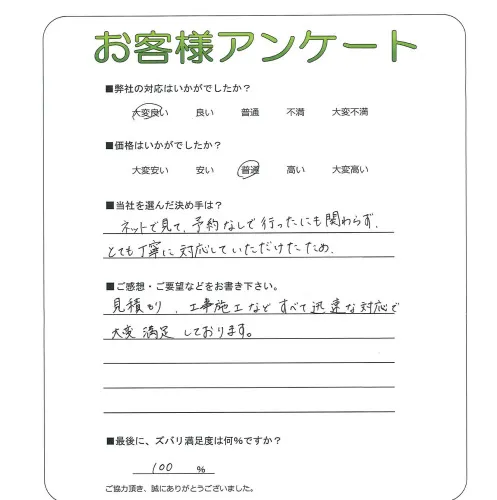 お客様アンケート
■弊社の対応はいかがでしたか？
大変良い 良い 普通 不満 大変不満
■価格はいかがでしたか？
大変安い 安い 普通 高い 大変高い
■当社を選んだ決め手は？
ネットで見て、予約なしで行ったにも関わらず、
とても丁寧に対応していただけたため。
■ご感想・ご要望などをお書き下さい。
見積もり、工事施工などすべて迅速な対応で
大変満足しております。
■最後に、ズバリ満足度は何%ですか？
100 %
ご協力頂き、誠にありがとうございました。